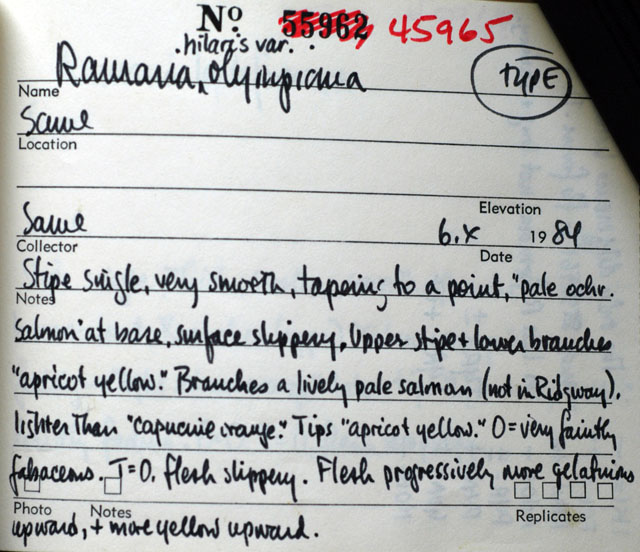 Nº 55962 45965
.hilaris var..
Ramaria, olympiana
TYPE
Name
Same
Location
Elevation
Same 6.x 1984
Collector Date
Stipe single, very smooth, tapering to a point, "pale ochr.
Notes
Salmon" at base, surface slippery, Upper stipe + lower branches
"apricot yellow." Branches a lively pale salmon (not in Ridgway).
lighter than "capucine orange." Tips "apricot yellow." O=very faintly
fabaceous. T=O. flesh slippery. Flesh progressively more gelatinous
Photo Notes Replicates
upward, + more yellow upward.